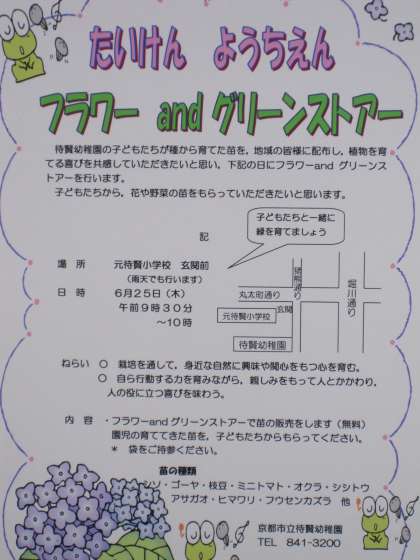 たいけん ようちえん
フラワー and グリーンストアー
待賢幼稚園の子どもたちが種から育てた苗を，地域の皆様に配布し，植物を育
てる喜びを共感していただきたいと思い，下記の日にフラワーand グリーンス
トアーを行います。
子どもたちから，花や野菜の苗をもらっていただきたいと思います。
記
子どもたちと一緒に
緑を育てましょう
場 所 元待賢小学校 玄関前
（雨天でも行います）
日 時 ６月２５日（木）
午前９時３０分
～１０時
猪熊通り
堀川通り
丸太町通り
玄関
元待賢小学校
待賢幼稚園
ねらい ○ 栽培を通して，身近な自然に興味や関心をもつ心を育む。
○ 自ら行動する力を育みながら，親しみをもって人とかかわり，
人の役に立つ喜びを味わう。
内 容 ・フラワーandグリーンストアーで苗の販売をします（無料）
園児の育ててきた苗を，子どもたちからもらってください。
＊ 袋をご持参ください。
苗の種類
シソ・ゴーヤ・枝豆・ミニトマト・オクラ・シシトウ
アサガオ・ヒマワリ・フウセンカズラ 他
京都市立待賢幼稚園
TEL 841-3200